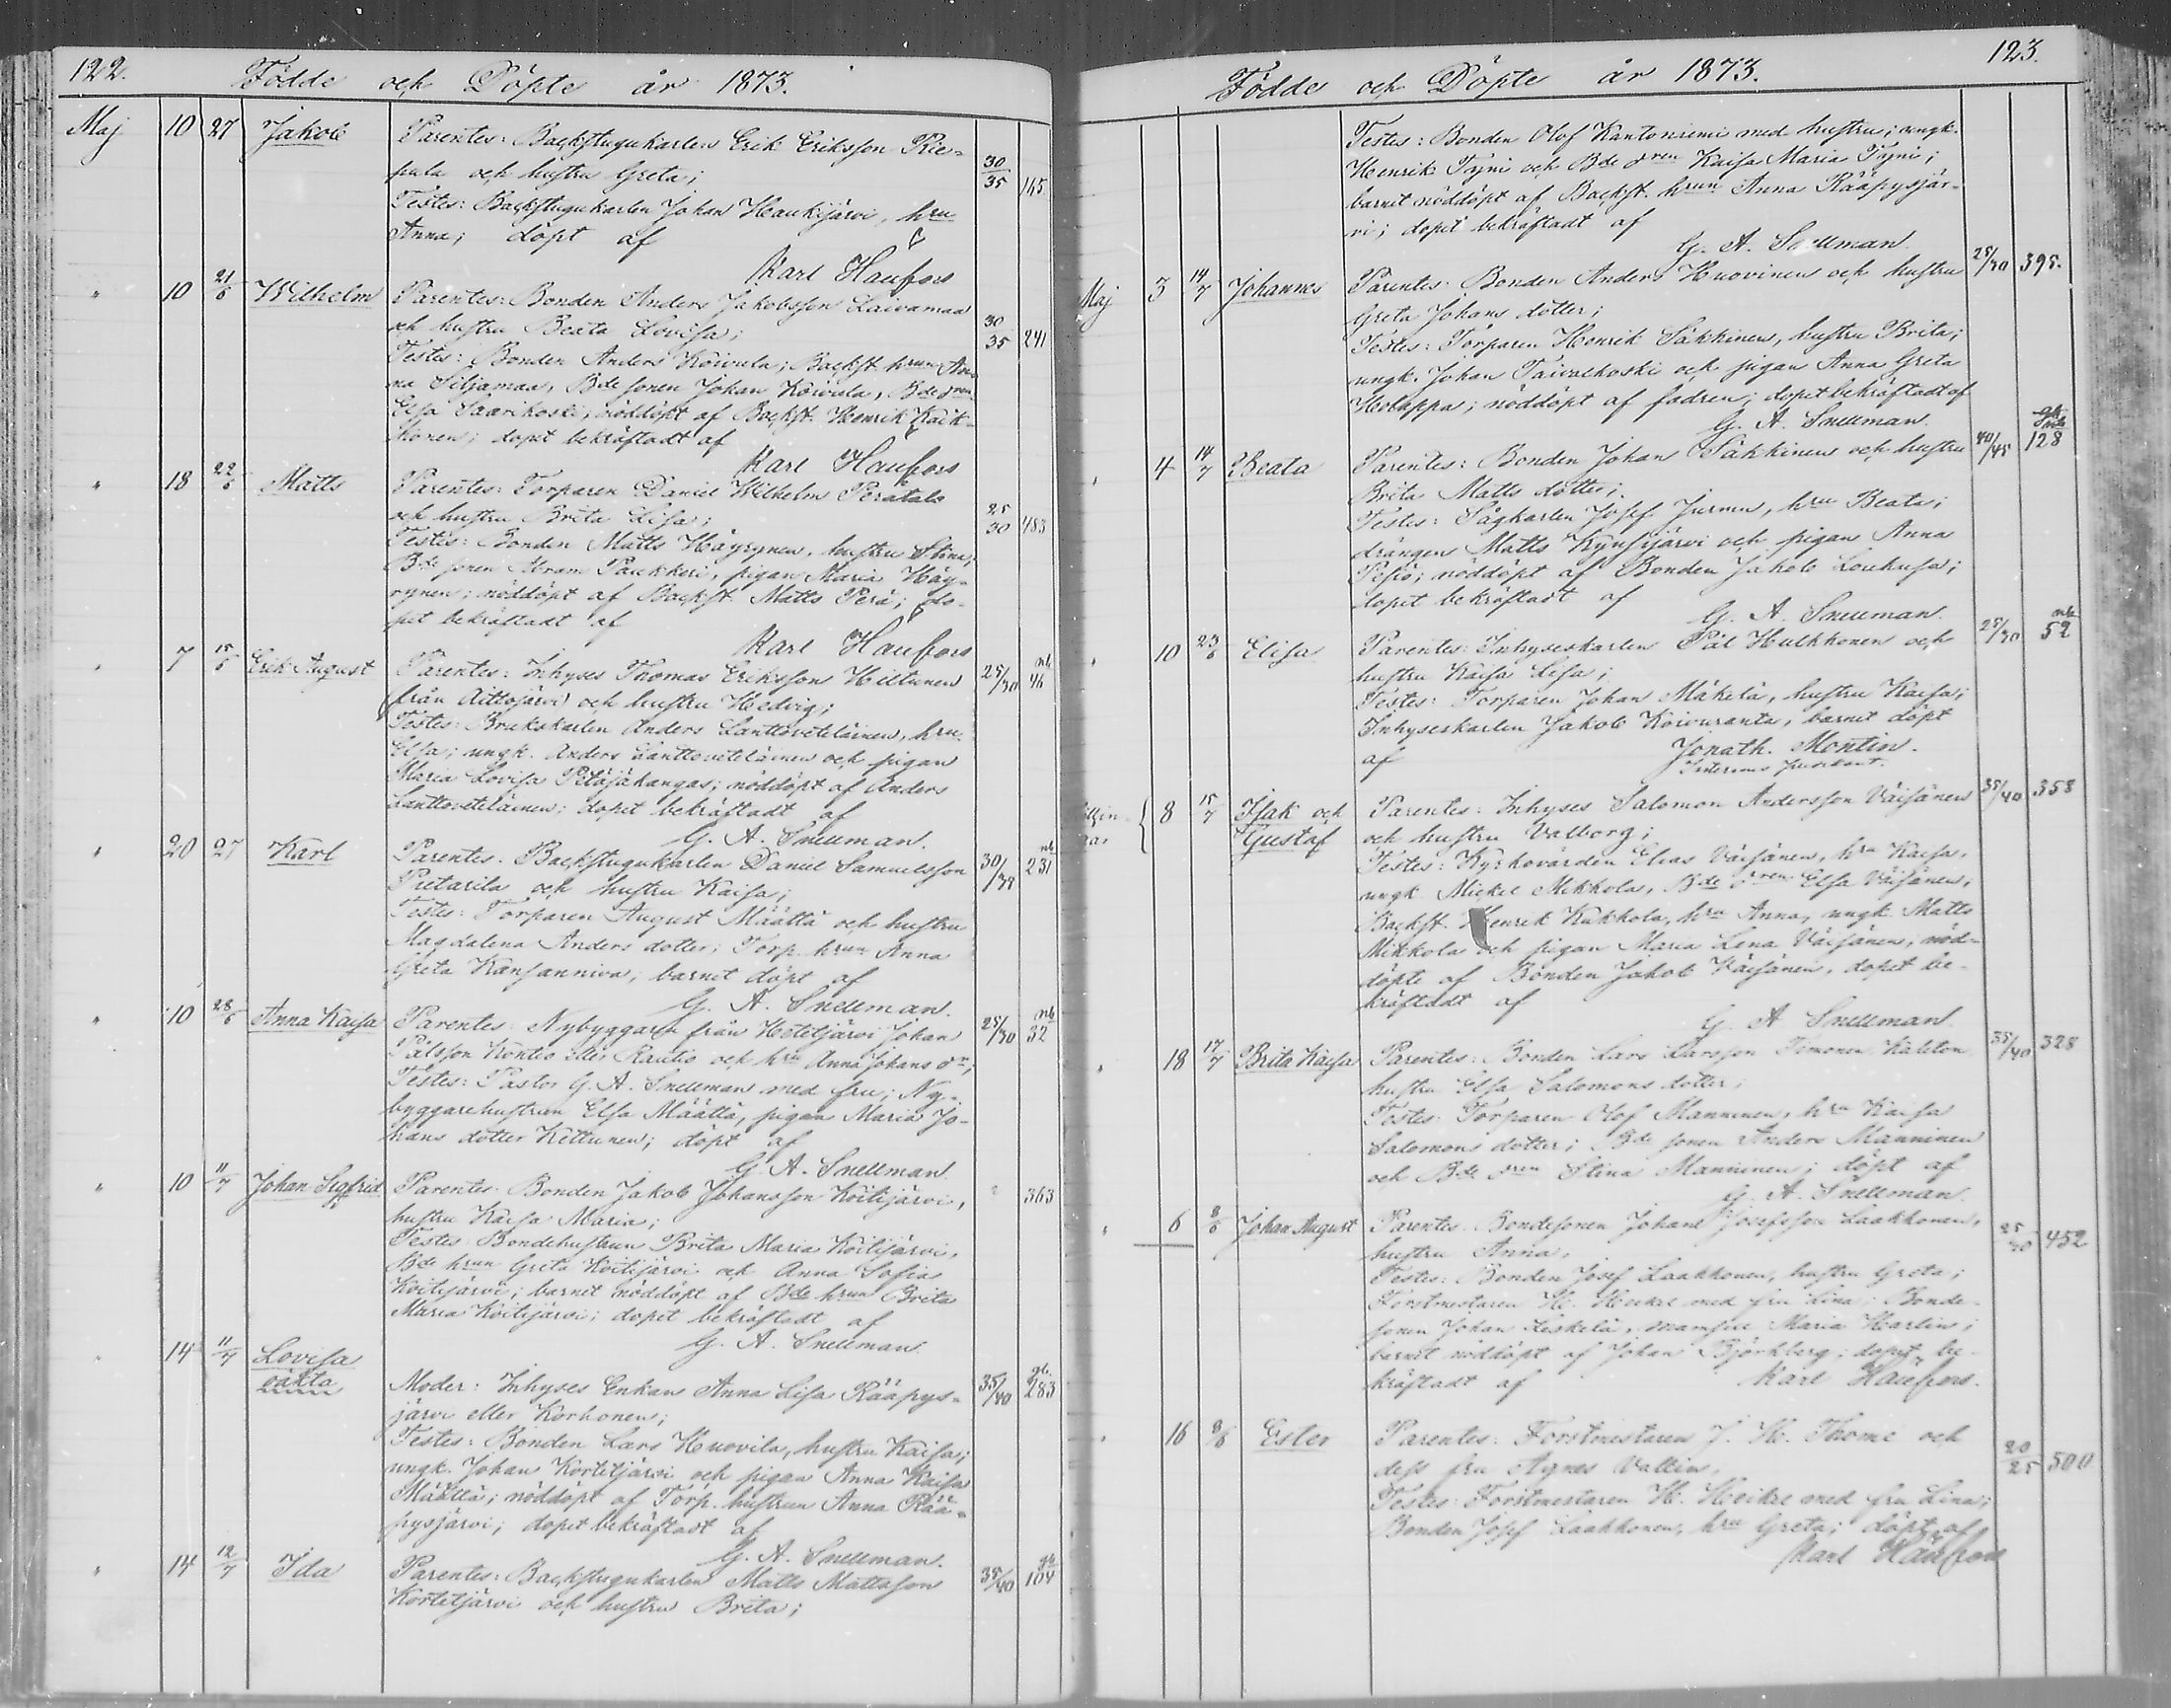 122.
Födde och Döpte år 1873.
Maj 10 27 Jakob Parentes: Backstugukarlen Erik Eriksson Rie-
pula och hustru Greta; 30/35 165
Testes: Backstugukarlen Johan Haukijärvi, hru
Anna; döpt af
Karl Haufors
" 10 21/6 Wilhelm Parentes: Bonden Anders Jakobsson Laivamaa
och hustru Beata Lovisa; 30/35 241
Testes: Bonden Anders Koivula; Backst. hrun An-
na Siljamaa, Bde sonen Johan Koivula, Bde dren
Elsa Saarikoski; nöddöpt af Backst. Henrik Kaik-
konen; dopet bekräftadt af
Karl Haufors
" 18 22/6 Matts Parentes: Torparen Daniel Wilhelm Perätalo
och hustru Brita Lisa; 25/30 483
Testes: Bonden Matts Häyrynen, hustru Stina;
Bde sonen Abram Paukkeri, pigan Maria Häy-
rynen; nöddöpt af Backst. Matts Perä; do-
pet bekräftadt af
Karl Haufors
" 7 15/6 Erik August Parentes: Inhyses Thomas Eriksson Hiltunen 25/30 nb 46
(från Aittojärvi) och hustru Hedvig;
Testes: Brukskarlen Anders Lanttoveteläinen, hru
Elsa; ungk. Anders Lanttoveteläinen och pigan
Maria Lovisa Petäjäkangas; nöddöpt af Anders
Lanttoveteläinen; dopet bekräftadt af
G. A. Snellman.
" 20 27 Karl Parentes: Backstugukarlen Daniel Samuelsson 30/35 nb 231
Pietarila och hustru Kaisa;
Testes: Torparen August Määttä och hustru
Magdalena Anders dotter; Torp. hrun Anna
Greta Kansanniva; barnet döpt af
G. A. Snellman.
" 10 28/6 Anna Kaisa Parentes: Nybyggaren från Hetetjärvi Johan 25/30 nb 32
Pålsson Kontio eller Rautio och hru Anna Johans dr;
Testes: Pastor G. A. Snellman med fru; Ny-
byggarehustrun Elsa Määttä, pigan Maria Jo-
hans dotter Kettunen; döpt af
G. A. Snellman
" 10 11/7 Johan Segfrid Parentes: Bonden Jakob Johansson Koitijärvi, " 363
hustru Kaisa Maria;
Testes: Bondehustrun Brita Maria Koitijärvi,
Bde hrun Greta Koitijärvi och Anna Sofia
Koitijärvi; barnet nöddöpt af Bde hrun Brita
Maria Koitijärvi; dopet bekräftadt af
G. A. Snellman
" 14 11/7 Lovisa
oäkta Moder: Inhyses Enkan Anna Lisa Rääpys- 35/40 gb. 283
järvi eller Korhonen;
Testes: Bonden Lars Huovila, hustru Kaisa;
ungk. Johan Kortetjärvi och pigan Anna Kaisa
Määttä; nöddöpt af Torp. hustrun Anna Rää-
pysjärvi; dopet bekräftadt af
G. A. Snellman.
" 14 12/7 Ida Parentes: Backstugukarlen Matts Mattsson 35/40 gb 104
Kortetjärvi och hustru Brita;
123.
Födde och Döpte år 1873.
Testes: Bonden Olof Kantoniemi med hustru; ungk.
Henrik Tyni och Bde dren Kaisa Maria Tyni;
barnet nöddöpt af Backst. hrun Anna Rääpysjär-
vi; dopet bekräftadt af
G. A. Snellman
Maj 3 14/7 Johannes Parentes: Bonden Anders Huovinen och hustru 25/30 395.
Greta Johans dotter;
Testes: Torparen Henrik Säkkinen, hustru Brita;
ungk. Johan Taivalkoski och pigan Anna Greta
Holappa; nöddöpt af fadren; dopet bekräftadt af
G. A. Snellman.
" 4 14/7 Beata Parentes: Bonden Johan Säkkinen och hustru 40/45 128
Brita Matts dotter;
Testes: Sågkarlen Josef Jurmu, hru Beata;
drängen Matts Kynsijärvi och pigan Anna
Pesiö; nöddöpt af Bonden Jakob Loukusa;
dopet bekräftadt af
G. A. Snellman.
" 10 23/6 Elisa Parentes: Inhyseskarlen Pål Hulkkonen och 25/30 nb 52
hustru Kaisa Lisa;
Testes: Torparen Johan Mäkelä, hustru Kaisa;
Inhyseskarlen Jakob Koivuranta, barnet döpt
af Jonath. Montin.
Interims predikant.
8 15/7 Isak och
Gustaf Parentes: Inhyses Salomon Andersson Väisänen 35/40 358
och hustru Valborg;
Testes: Kyrkovärden Elias Väisänen, hru Kaisa,
ungk. Mickel Mikkola, Bde dren Elsa Väisänen;
Backst. Henrik Kukkola, hru Anna, ungk. Matts
Mikkola och pigan Maria Lena Väisänen, nöd-
döpte af Bonden Jakob Väisänen, dopet be-
kräftadt af
G. A. Snellman
" 18 17/7 Brita Kaisa Parentes: Bonden Lars Larsson Timonen Kaleton 35/40 328
hustru Elsa Salomons dotter;
Testes: Torparen Olof Manninen, hru Kaisa
Salomons dotter; Bde sonen Anders Manninen
och Bde dren Stina Manninen; döpt af
G. A. Snellman.
" 6 8/6 Johan August Parentes: Bondesonen Johan Josefsson Laakkonen, 25/30 452
hustru Anna,
Testes: Bonden Josef Laakkonen, hustru Greta;
Forstmestaren H. Heikel med fru Lina; Bonde-
sonen Johan Leskelä, mamsell Maria Hartin;
barnet nöddöpt af Johan Björkberg; dopet be-
kräftadt af Karl Haufors.
" 16 8/6 Ester Parentes: Forstmestaren J. H. Thomé och
dess fru Agnes Vallin, 20/25 500
Testes: Forstmestaren H. Heikel med fru Lina;
Bonden Josef Laakkonen, hru Greta; döpt af
Karl Haufors